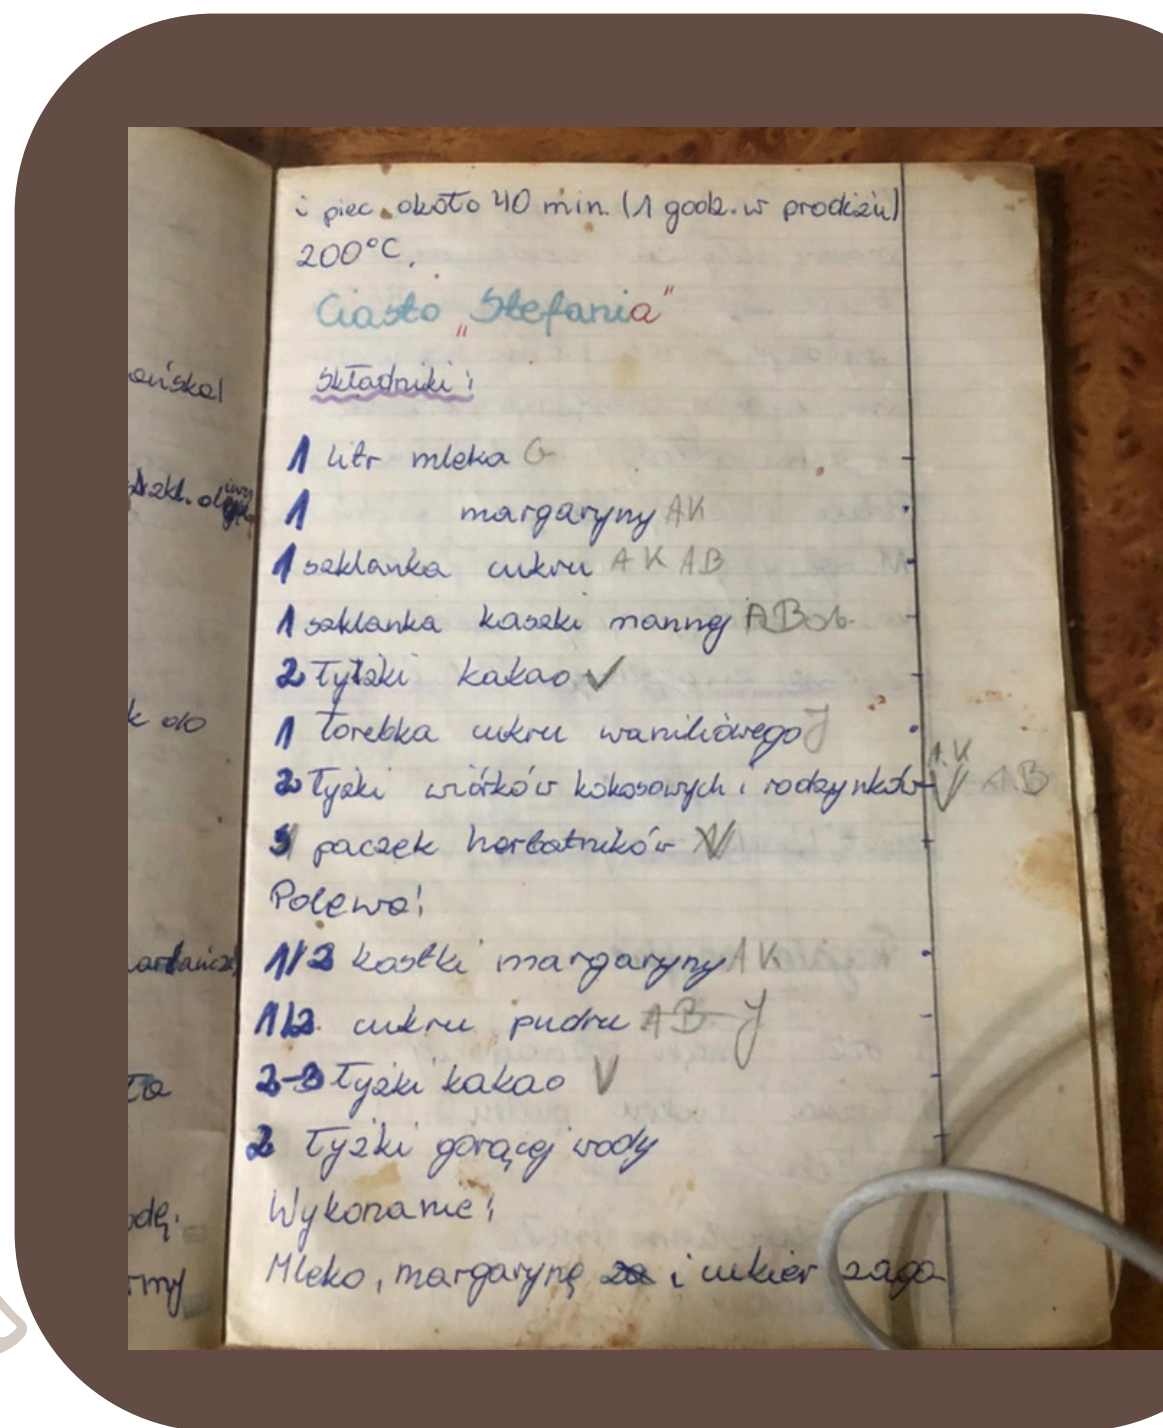 i piec około 40 min. (1 godz. w prodiżu)
200°C.
Ciasto „Stefania"
Składniki:
1 litr mleka G
1 margaryny AK
1 szklanka cukru AK AB
1 szklanka kaszki mannej AB
2 łyżki kakao
1 torebka cukru waniliowego J
2 łyżki wiórków kokosowych i rodzynków AK AB
paczek herbatników
Polewa:
1/2 kostki margaryny AK
1/2 cukru pudru AB J
2-3 łyżki kakao
2 łyżki gorącej wody
Wykonanie:
Mleko, margarynę za i cukier zago
k do
odę.
rmy